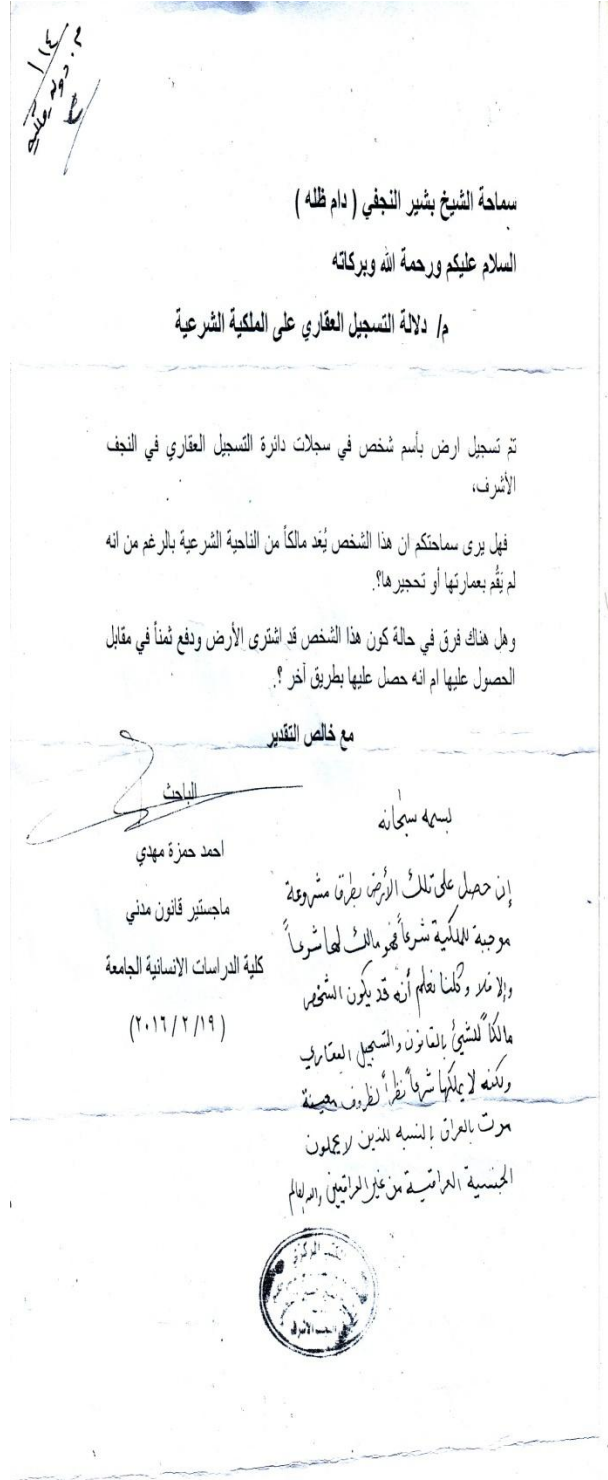 سماحة الشيخ بشير النجفي ( دام ظله )
السلام عليكم ورحمة الله وبركاته
م/ دلالة التسجيل العقاري على الملكية الشرعية
تمَ تسجيل ارض بأسم شخص في سجلات دائرة التسجيل العقاري في النجف
الأشرف،
فهل يرى سماحتكم ان هذا الشخص يُعَد مالكاً من الناحية الشرعية بالرغم من انه
لم يَقُم بعمارتها أو تحجيرها؟.
وهل هناك فرق في حالة كون هذا الشخص قد اشترى الأرض ودفع ثمناً في مقابل
الحصول عليها ام انه حصل عليها بطريق آخر ؟.
مع خالص التقدير
الباحث
احمد حمزة مهدي
ماجستير قانون مدني
كلية الدراسات الانسانية الجامعة
( ٢٠١٦ / ٢ /١٩ )
بسمه سبحانه
إن حصل على تلك الأرض بطرق مشروعة
موجبة للملكية شرعاً فهو مالك لها شرعاً
وإلا فلا وكلنا نعلم أنه قد يكون الشخص
مالكاً للشيئ بالقانون والتسجيل العقاري
ولكنه لا يملكها شرعاً نظراً لظروف معينة
مرت بالعراق بالنسبه للذين لا يحملون
الجنسية العراقية من غير العراقيين والله العالم